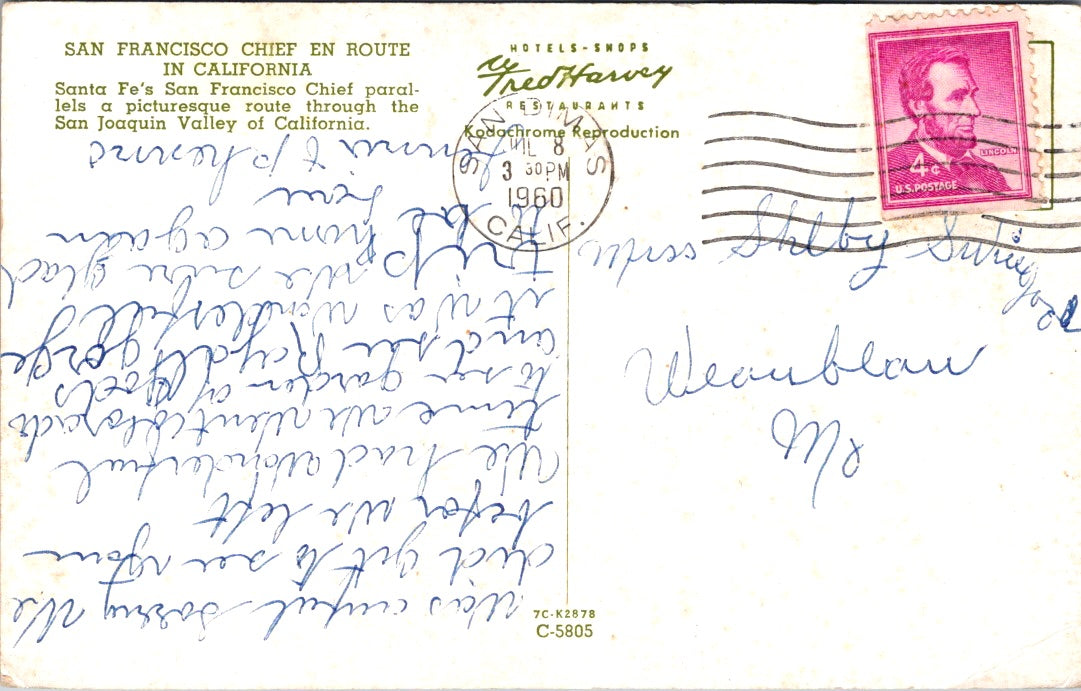 SAN FRANCISCO CHIEF EN ROUTE
IN CALIFORNIA
Santa Fe's San Francisco Chief paral-
lels a picturesque route through the
San Joaquin Valley of California.
HOTELS-SHOPS
Fred Harvey
RESTAURANTS
Kodachrome Reproduction
SAN DIMAS
JUL 8
3 30 PM
1960
CALIF.
LINCOLN
4¢
U.S. POSTAGE
Shelby
Weaubleau
Mo
Was awful Sorry We
did get to see you
befor we left
We had wonderful
time we went Colorado
to see garden of Gods
and see Royall gorge
it was wonderfull
trip we sure glad
to be home again
from
7C-K2878
C-5805